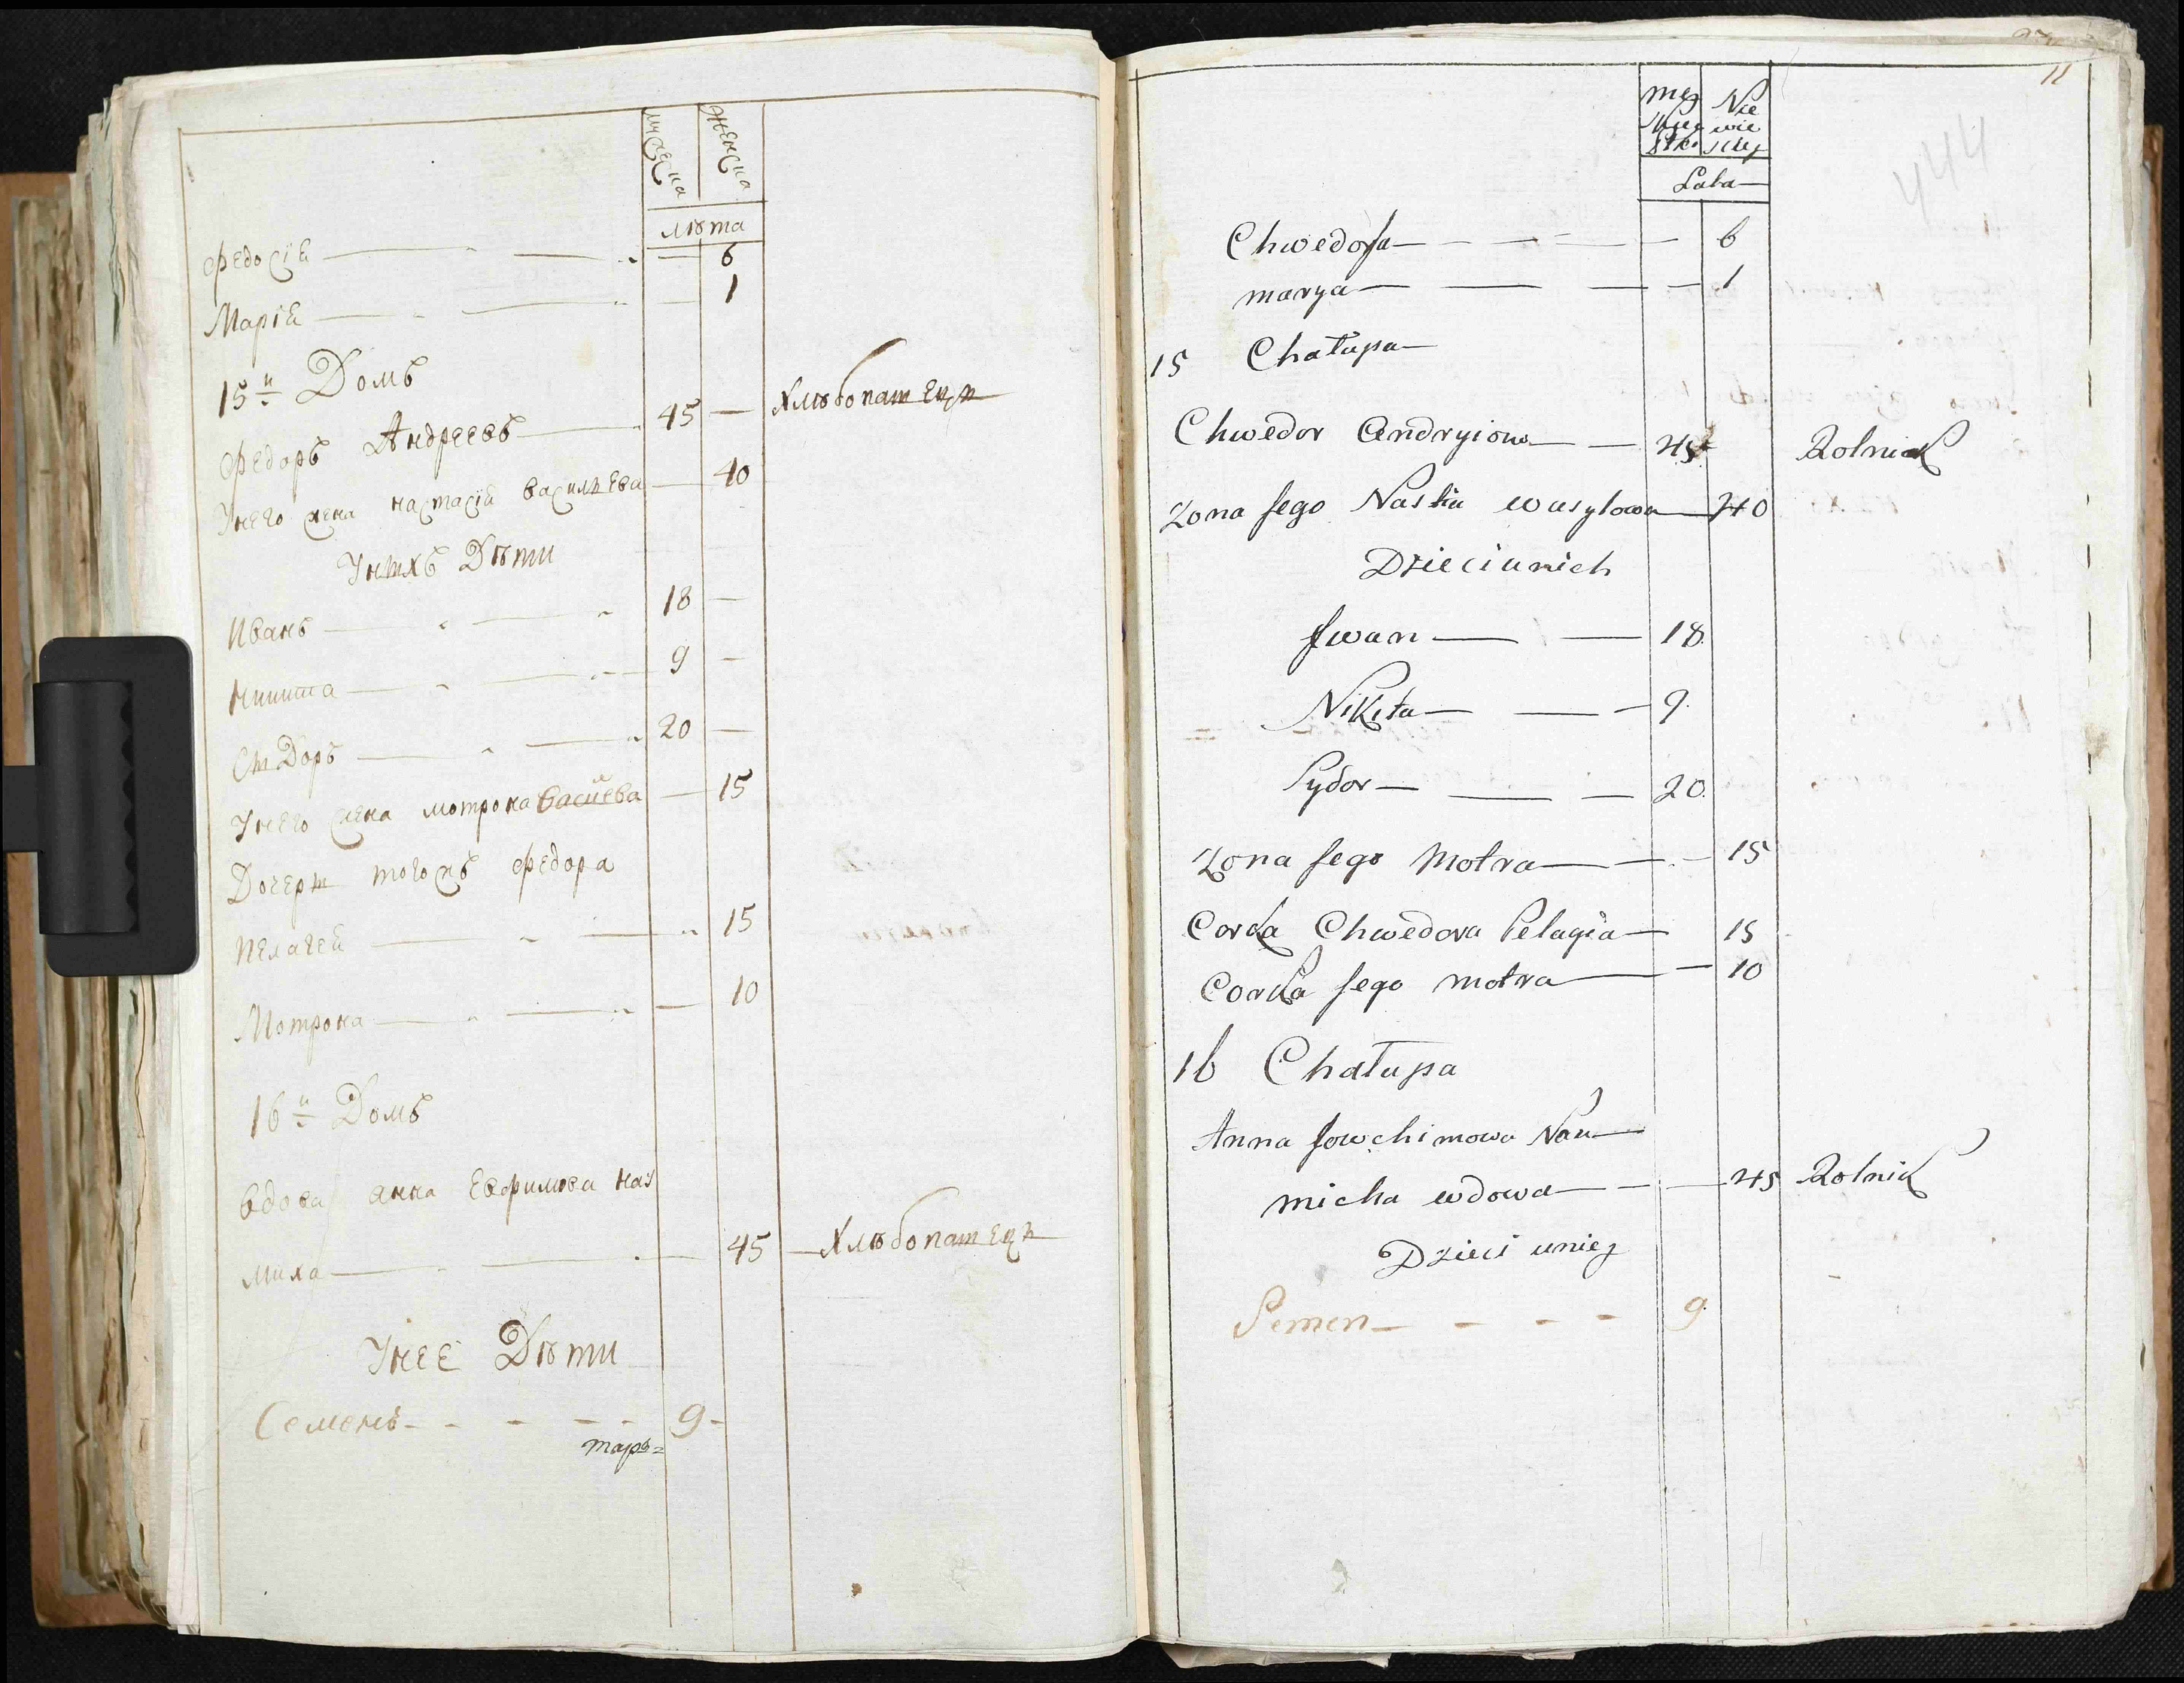 мужеска женска
лѣта
Федосія — — — 6
Марія — — — 1
15й Домъ
Федоръ Андреевъ — 45 — Хлѣбопашецъ
Унего жена настасія василева — 40
Унихъ Дѣти
Иванъ — — 18 —
Никита — — 9 —
Сидоръ — — 20 —
Унего жена мотрона васиева — 15
Дочери тогожъ федора
Пелагея — — 15
Мотрона — — — 10
16й Домъ
вдова анна Евфимова нау
миха — — 45 — Хлѣбопашецъ
Унее Дѣти
Семенъ - - - - - 9 -
маръ=
11
444
męz Nie
wie
sciey
Lata
Chwedosia — — — — 6
marya — — — — 1
15 Chałupa
Chwedor Andryiow — — 45 Rolnik
Zona Jego Nastia wasylowa — 40
Dzieci unich
Jwan — — 18.
Nikita — — — 9.
Sydor — — — 20.
Zona Jego Motra — — — 15
Corka Chwedora Pelagia — 15
Corka Jego motra — — 10
16 Chałupa
Anna Jowchimowa Nau
micha wdowa — — — 45 Rolnik
Dzieci uniey
Semen — - - - 9.